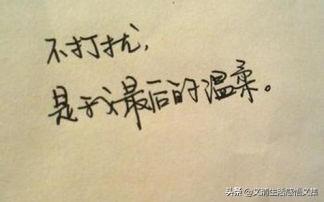 不打扰,
是我最后的温柔。
头条@文清生活感悟文集